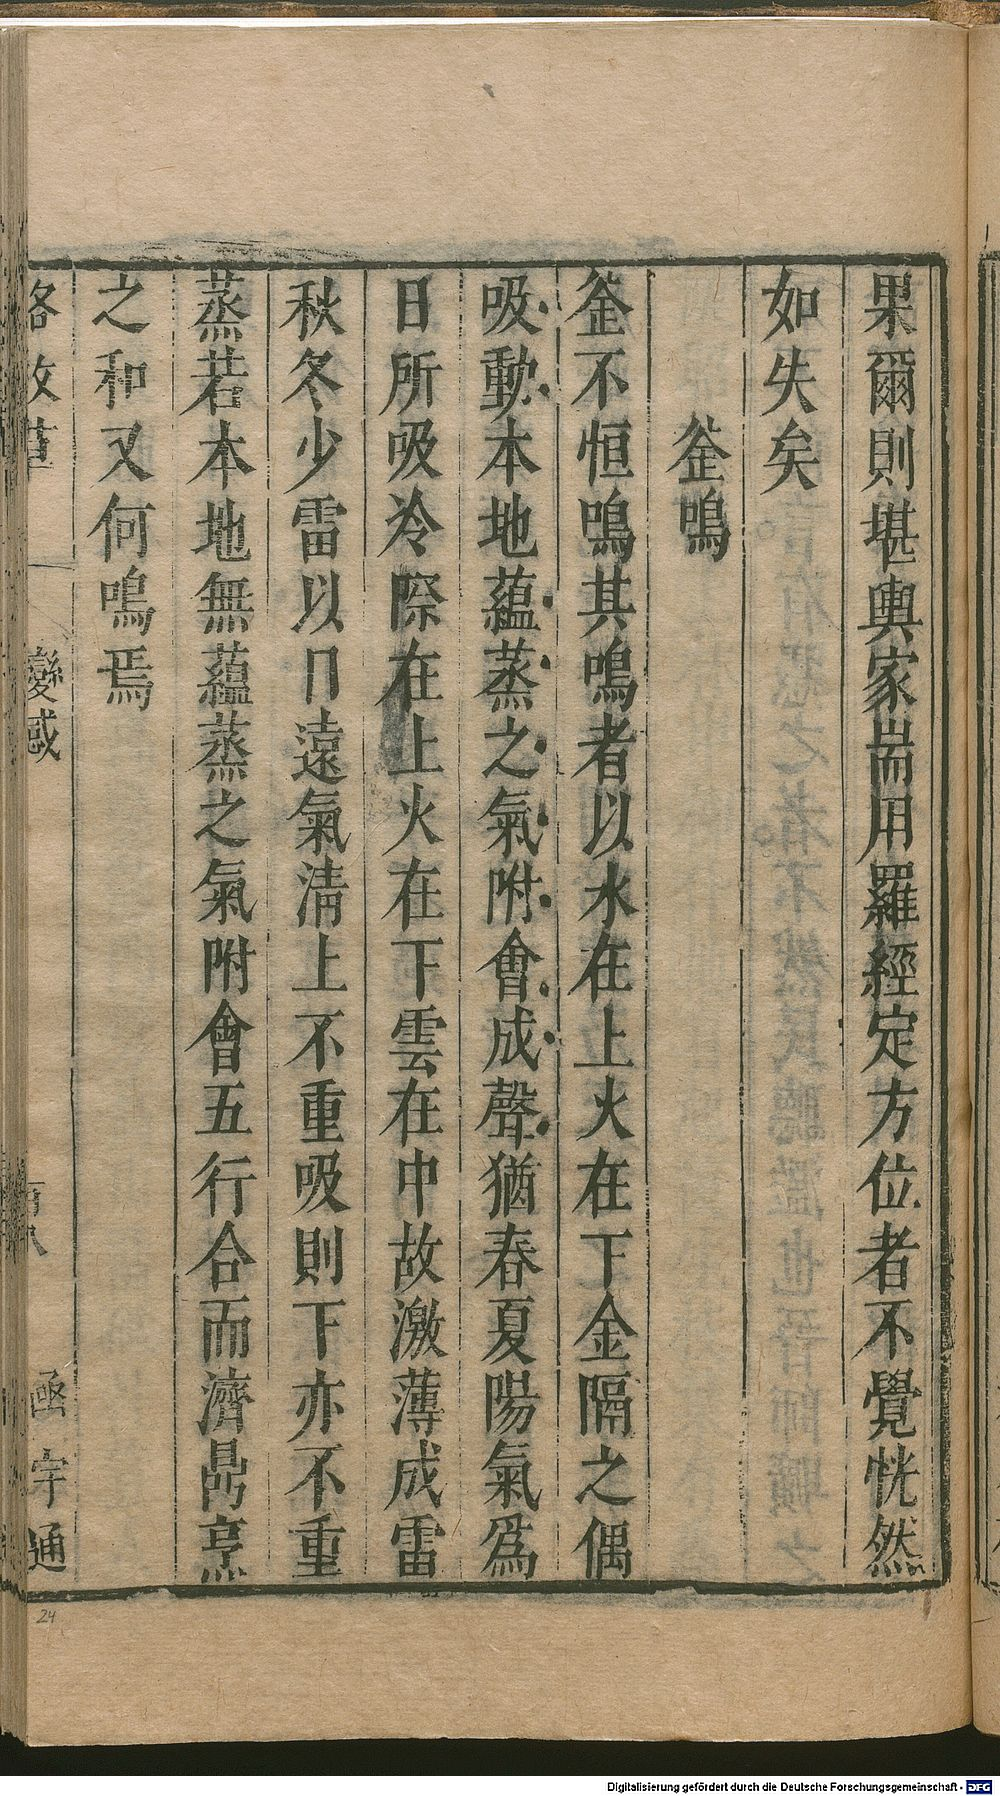 果爾則堪輿家耑用羅經定方位者不覺恍然
如失矣
釜鳴
釜不恒鳴其鳴者以水在上火在下金隔之偶
吸動本地蘊蒸之氣附會成聲猶春夏陽氣爲
日所吸冷際在上火在下雲在中故激薄成雷
秋冬少雷以日遠氣清上不重吸則下亦不重
蒸若本地無蘊蒸之氣附會五行合而濟鼎烹
之和又何鳴焉
格致草
變感
函宇通
24
Digitalisierung gefördert durch die Deutsche Forschungsgemeinschaft - DFG